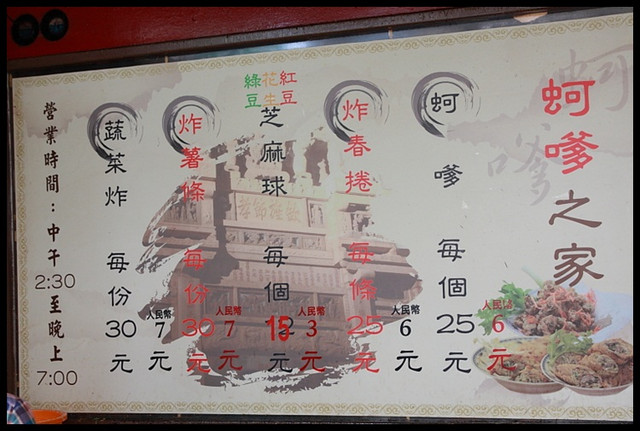 蚵嗲之家
蚵嗲 每個25元
人民幣6元
炸春捲 每條25元
人民幣6元
紅豆
花生
綠豆
芝麻球 每個15元
人民幣3元
炸薯條 每份30元
人民幣7元
蔬菜炸 每份30元
人民幣7元
營業時間：中午2:30至晚上7:00